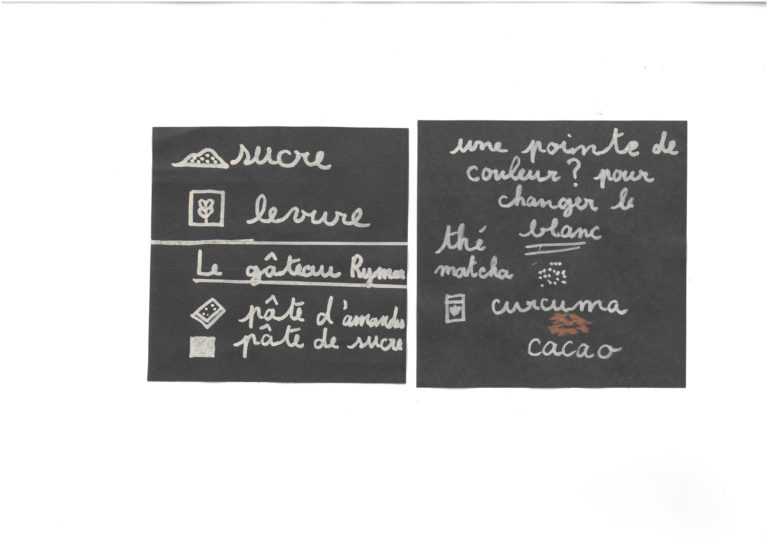 sucre
levure
Le gâteau Rymea
pâte d'amandes
pâte de sucre
une pointe de
couleur ? pour
changer le
blanc
thé
matcha
curcuma
cacao